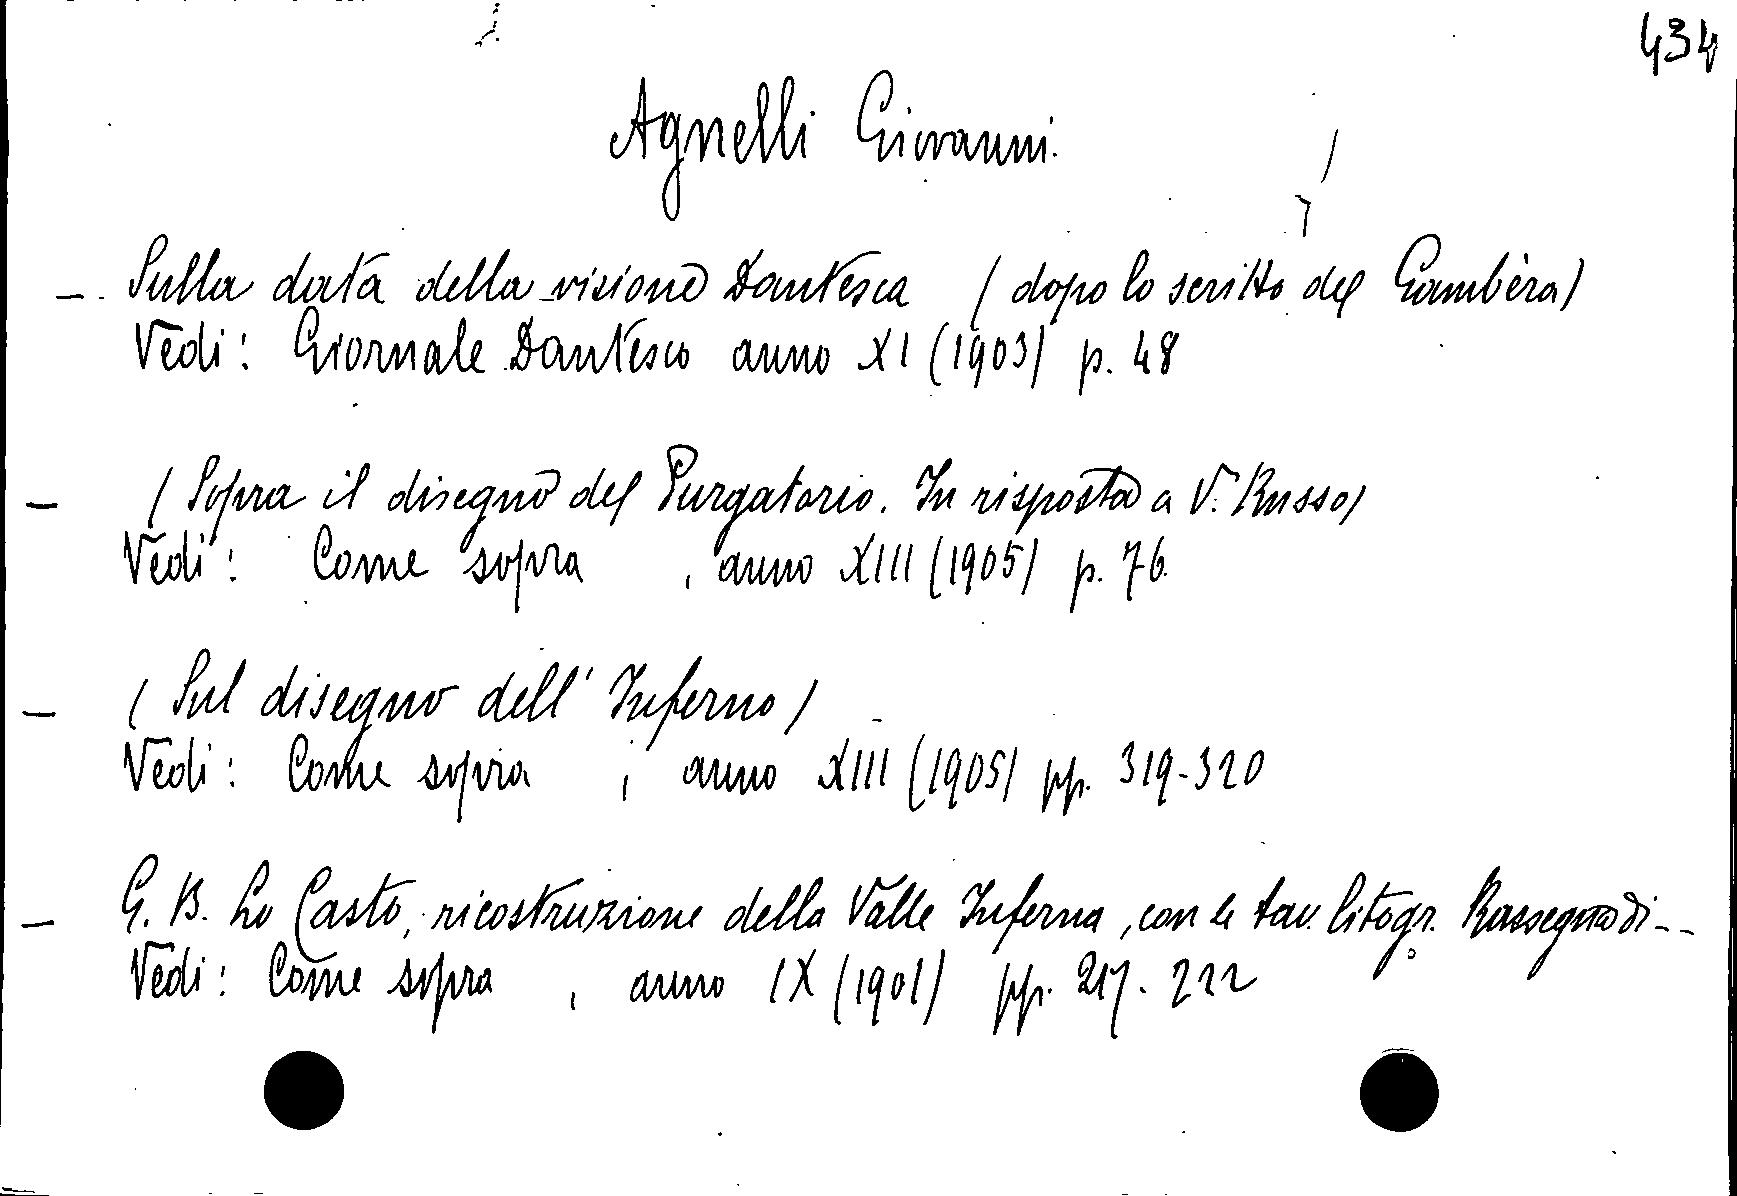 434
Agnelli Giovanni.
- Sulla data della visione Dantesca (dopo lo scritto del Gambèra)
Vedi: Giornale Dantesco anno XI (1903) p. 48
- (Sopra il disegno del Purgatorio. In risposta a V. Russo)
Vedi: Come sopra , anno XIII (1905) p. 76.
- (Sul disegno dell'Inferno)
Vedi: Come sopra , anno XIII (1905) pp. 319-320
- G. B. Lo Casto, ricostruzione della Valle Inferna, con le tav. litogr. Rassegna di --
Vedi: Come sopra , anno IX (1901) pp. 217-222